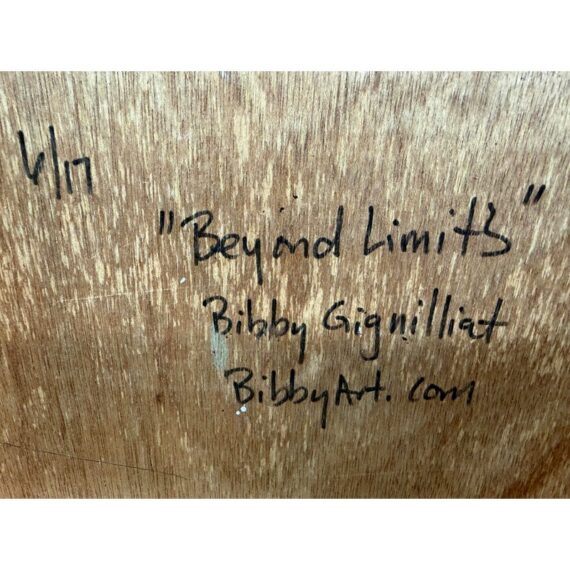 6/17
"Beyond Limits"
Bibby Gignilliat
BibbyArt.com